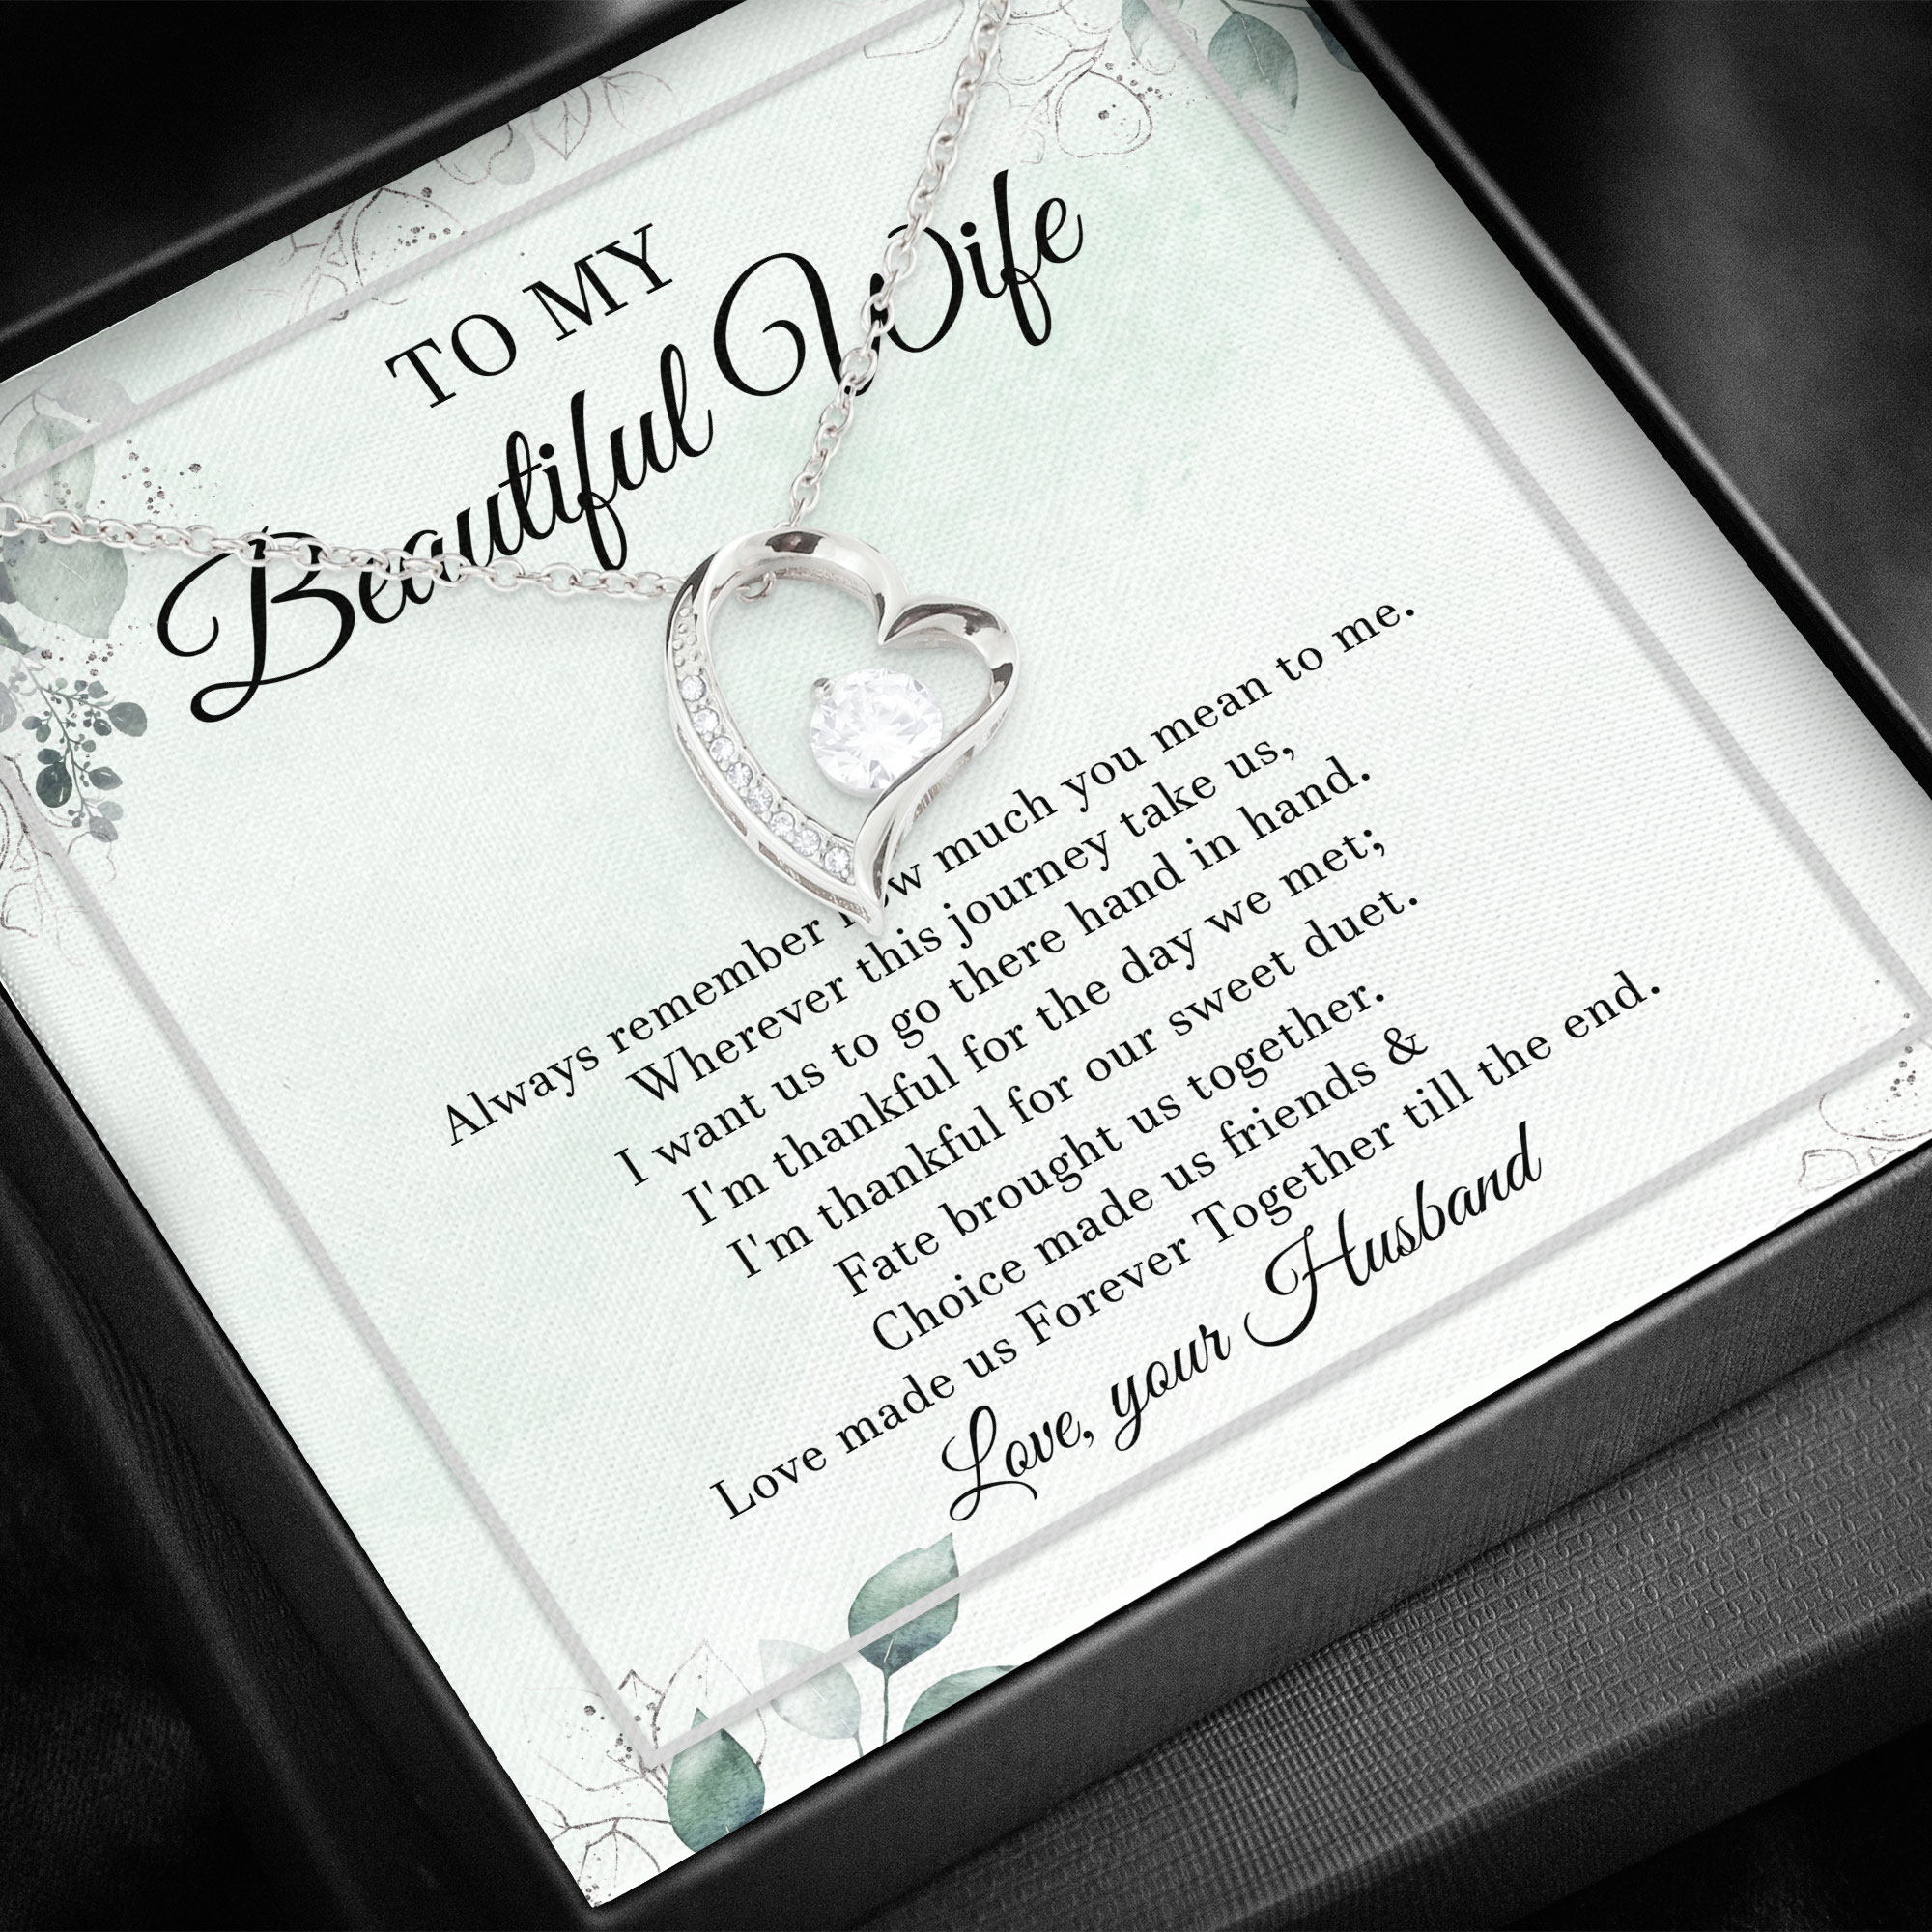 TO MY
Beautiful Wife
Always remember how much you mean to me.
Wherever this journey take us,
I want us to go there hand in hand.
I'm thankful for the day we met;
I'm thankful for our sweet duet.
Fate brought us together.
Choice made us friends &
Love made us Forever Together till the end.
Love, your Husband